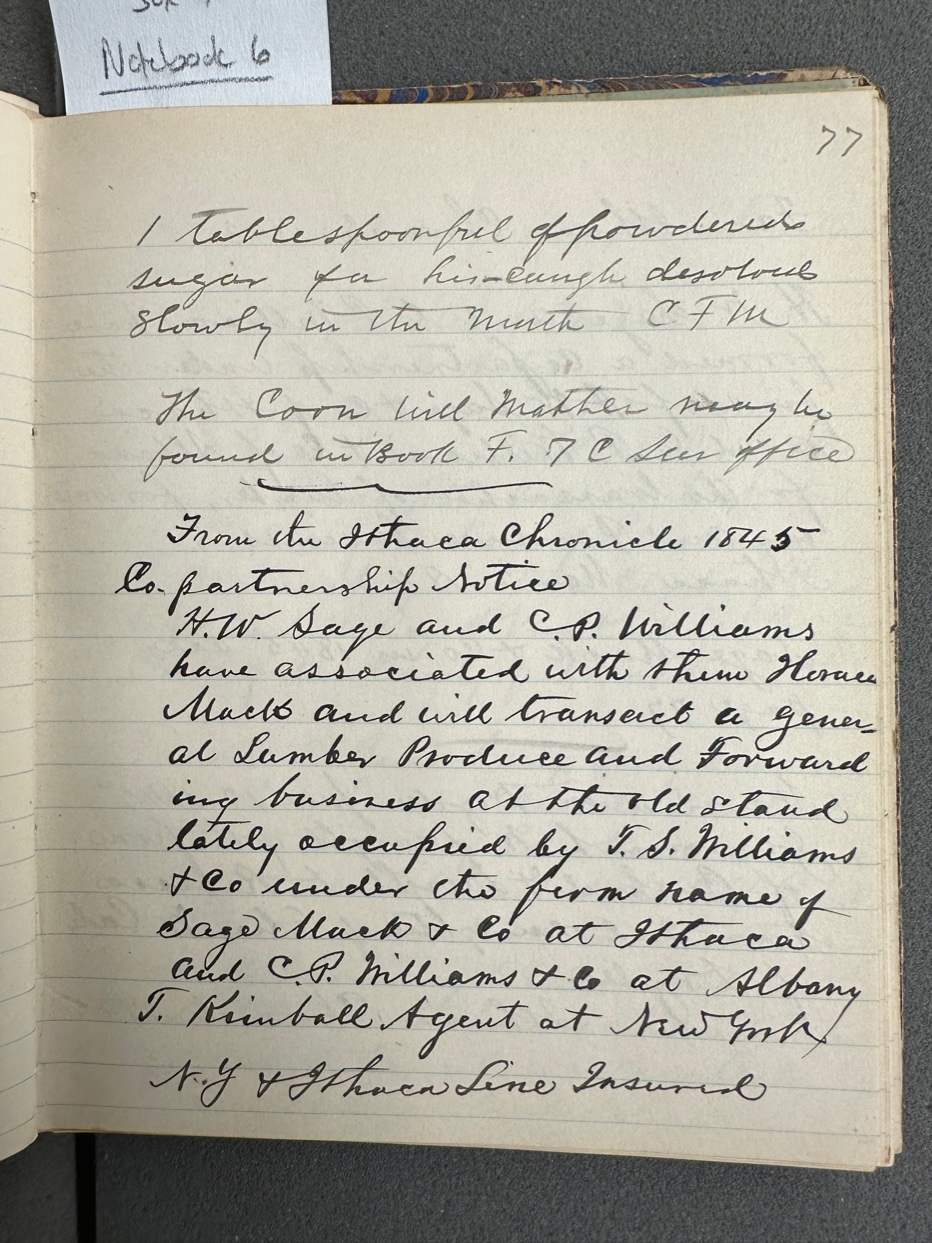 Notebook 6
77
1 tablespoonful of powdered
sugar for his cough desolved
Slowly in the Mouth C F M
The Coon Will Mather may be
found in Book F. T C Sur office
From the Ithaca Chronicle 1845
Co. partnership Notice
H.W. Sage and C.P. Williams
have associated with them Horace
Mack and will transact a gener-
al Lumber Produce and Forward
ing business at the old stand
lately occupied by T. S. Williams
& Co under the firm name of
Sage Mack & Co at Ithaca
and C.P. Williams & Co at Albany
T. Kimball Agent at New York
N.Y & Ithaca Line Insured